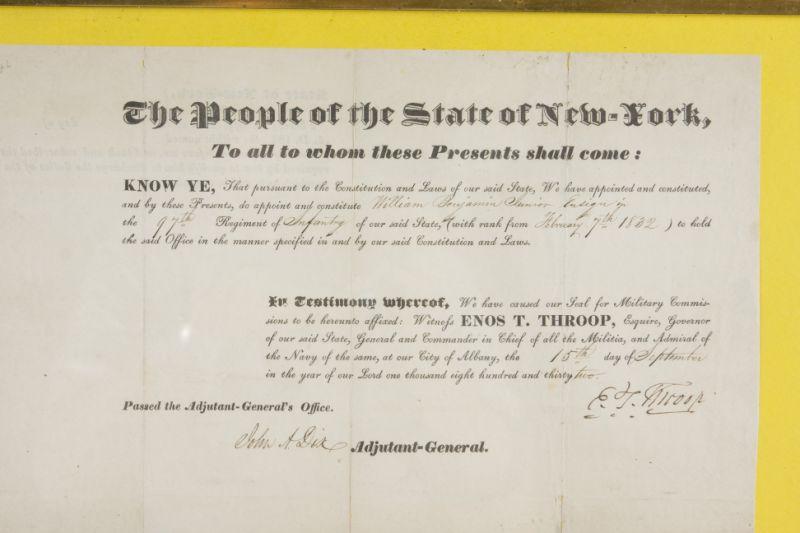 The People of the State of New-York,
To all to whom these Presents shall come:
KNOW YE, That pursuant to the Constitution and Laws of our said State, We have appointed and constituted,
and by these Presents, do appoint and constitute William Benjamin Junior Ensign in
the 97th Regiment of Infantry of our said State, (with rank from February 7th 1832 ) to hold
the said Office in the manner specified in and by our said Constitution and Laws.
In Testimony whereof, We have caused our Seal for Military Commis-
sions to be hereunto affixed: Witness ENOS T. THROOP, Esquire, Governor
of our said State, General and Commander in Chief of all the Militia, and Admiral of
the Navy of the same, at our City of Albany, the 15th day of September
in the year of our Lord one thousand eight hundred and thirty two.
E. T. Throop
Passed the Adjutant-General's Office.
John A. Dix Adjutant-General.